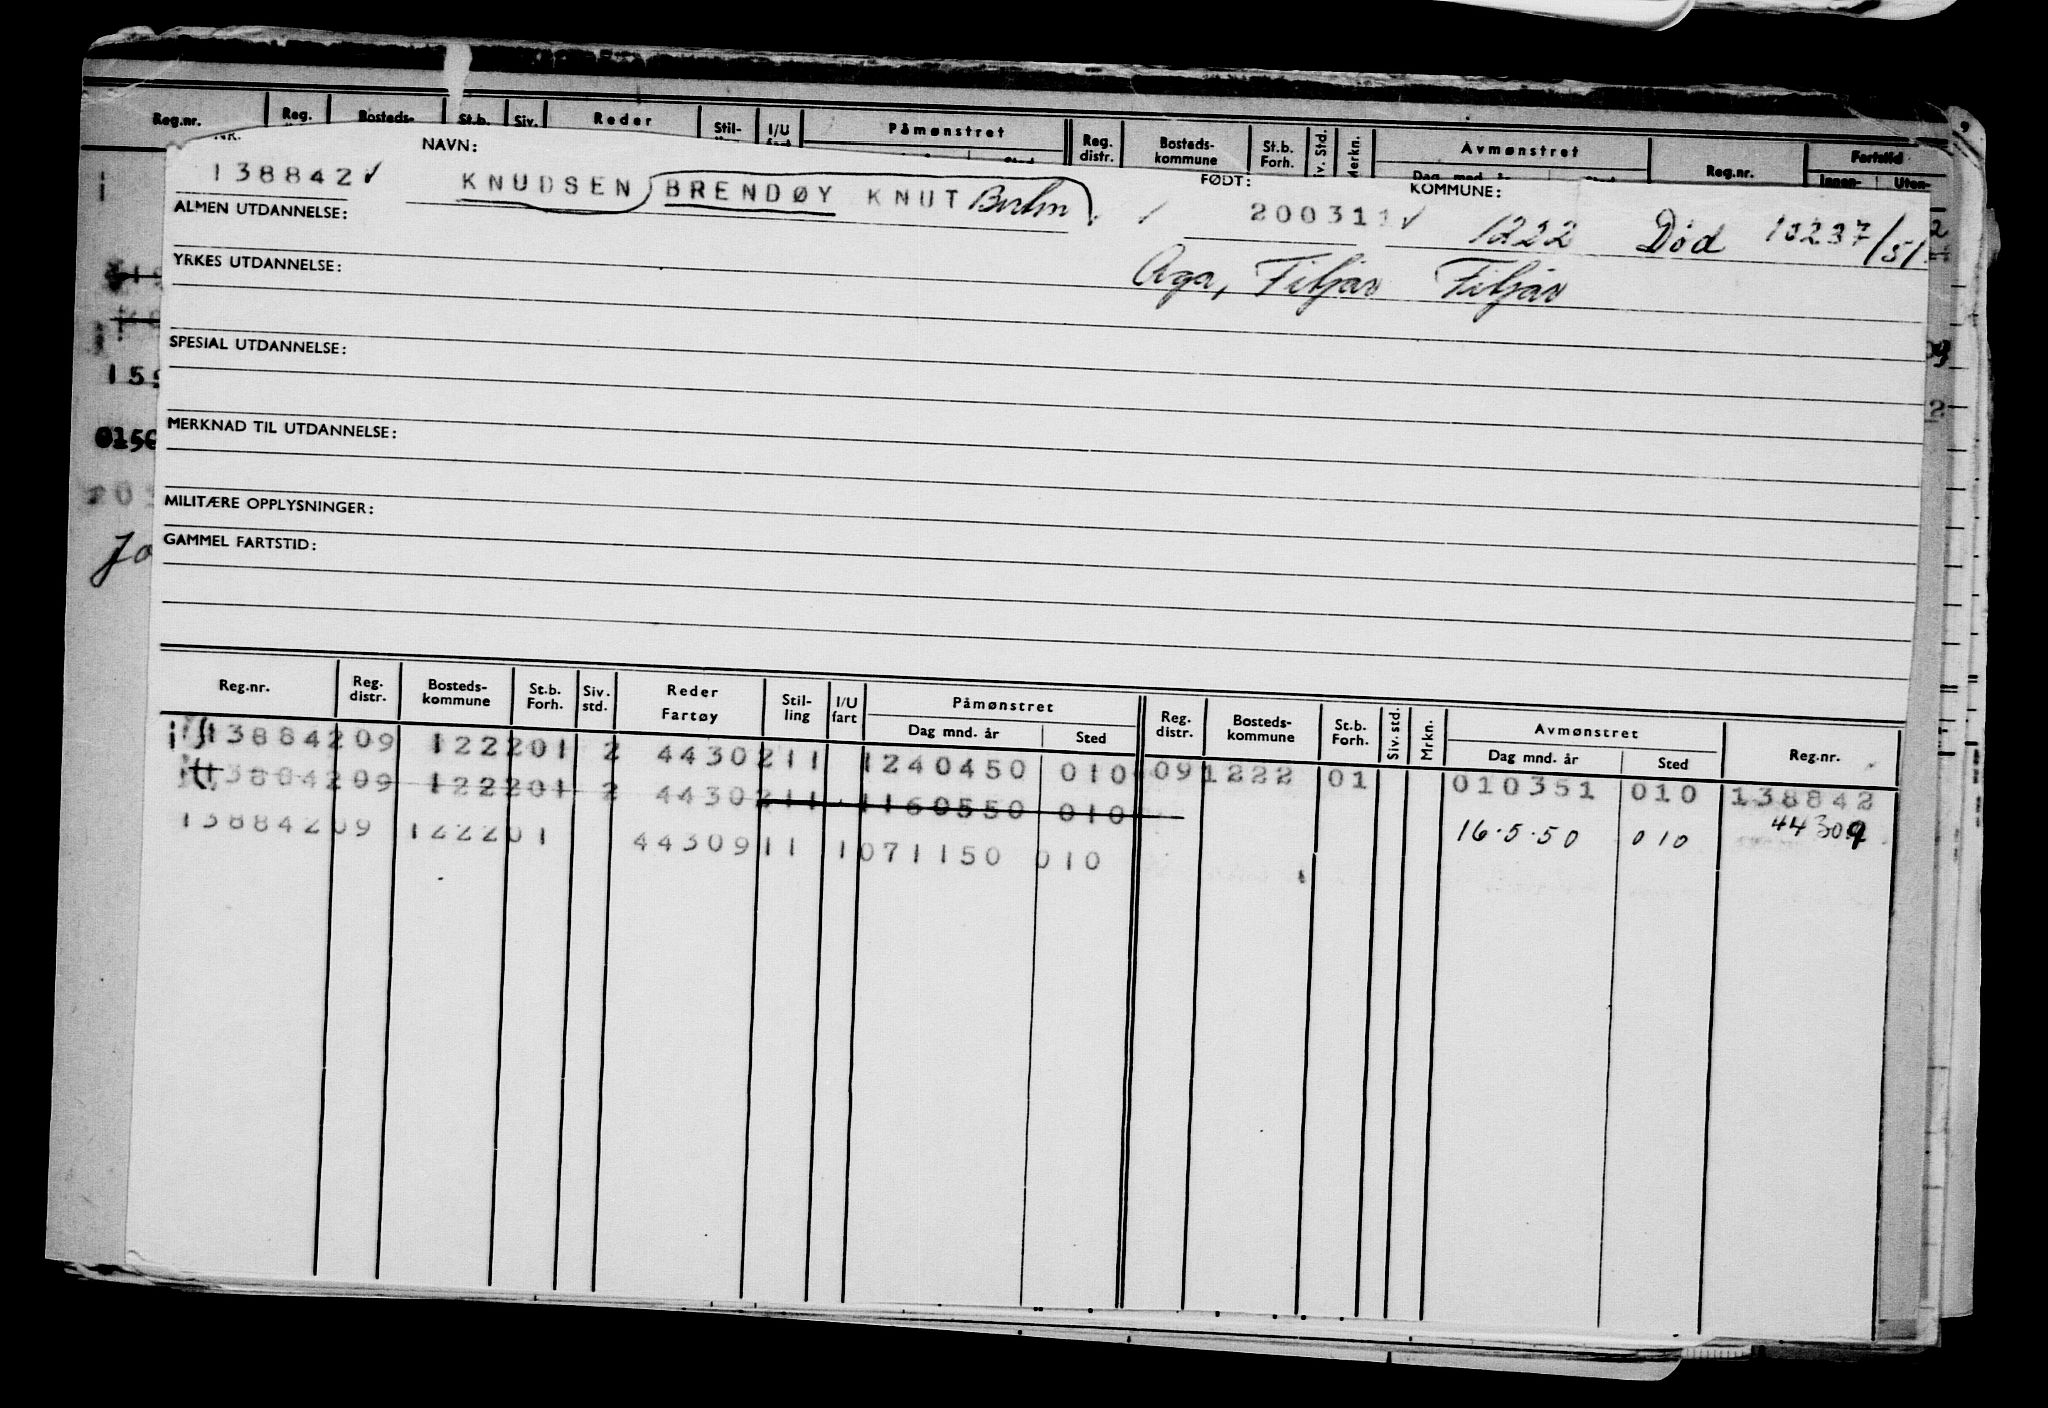 Reg.nr. Reg. Bosteds- St.b. Siv. Reder Stil- I/U Påmønstret Reg. distr. Bosteds- kommune St.b. Forh. Siv. Std. Merkn. Avmønstret Reg.nr. Fartstid
Dag mnd. år Sted Innen- Uten-
NAVN: FØDT: KOMMUNE:
138842 KNUDSEN BRENDØY KNUT 200311 1222 Død 10237/51
ALMEN UTDANNELSE:
Aga, Fitjar Fitjar
YRKES UTDANNELSE:
SPESIAL UTDANNELSE:
159
MERKNAD TIL UTDANNELSE:
MILITÆRE OPPLYSNINGER:
GAMMEL FARTSTID:
Reg.nr. Reg. distr. Bosteds- kommune St.b. Forh. Siv. std. Reder Fartøy Stil- ling I/U fart Påmønstret Reg. distr. Bosteds- kommune St.b. Forh. Siv. std. Mrkn. Avmønstret Reg.nr.
Dag mnd. år Sted Dag mnd. år Sted
138842 09 1222 01 2 44302 11 1 240450 010 09 1222 01 010351 010 138842
138842 09 1222 01 2 44302 11 1 160550 010 16.5.50 010 44309
138842 09 1222 01 44309 11 1 071150 010